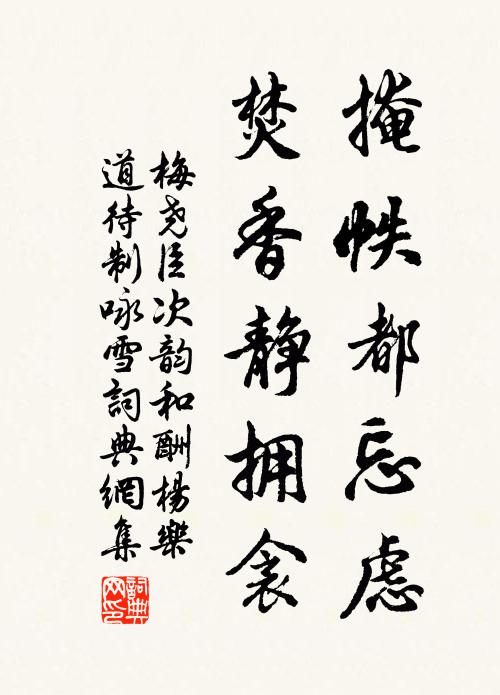 掩帙都忘虑
焚香静拥衾
梅尧臣次韵和酬杨樂
道待制咏雪詞典網集
詞典网印